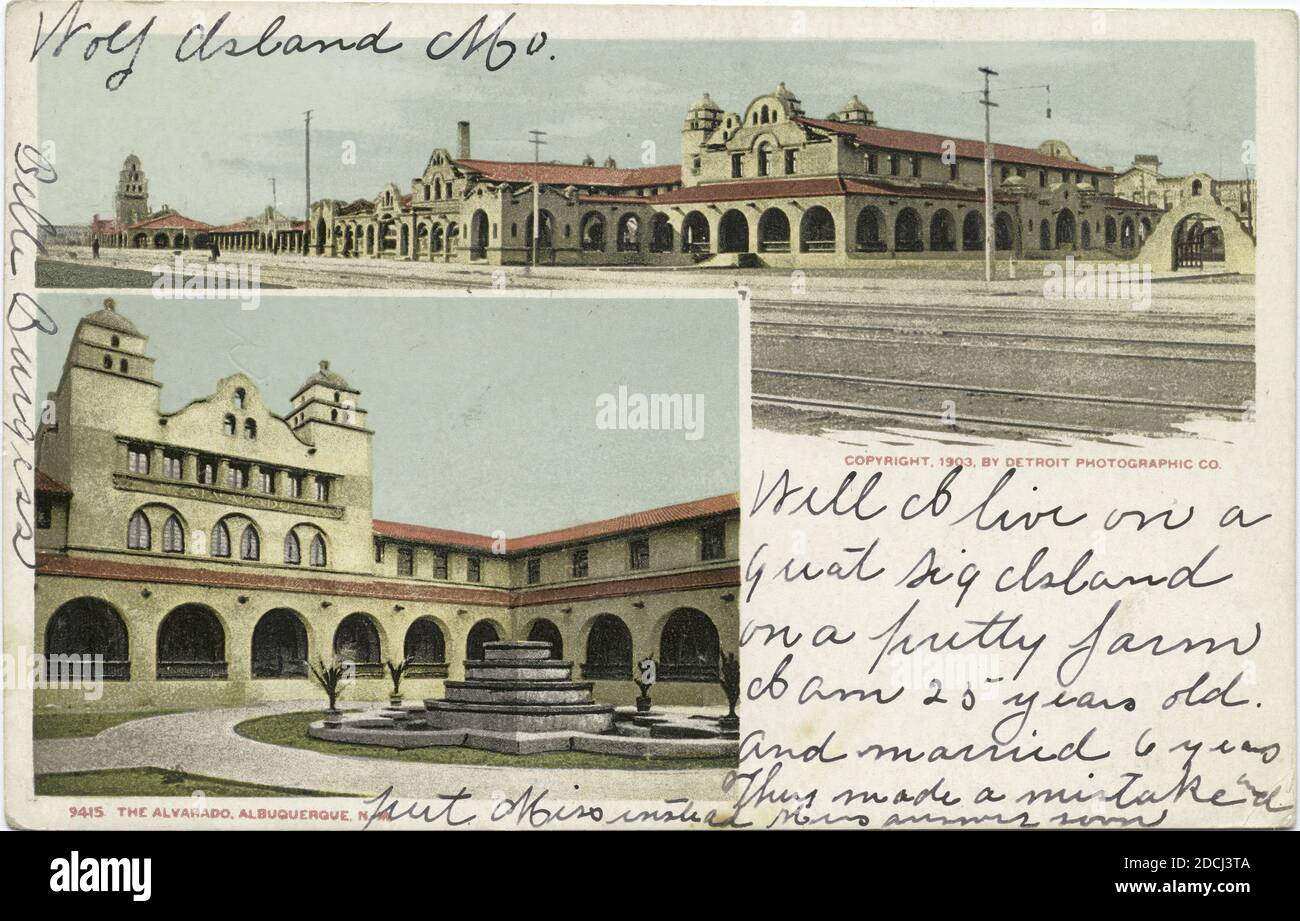 Wolf Island Mo.
Belle Burgess
COPYRIGHT, 1903, BY DETROIT PHOTOGRAPHIC CO.
Well I live on a
great big Island
on a pretty farm
I am 25 years old.
and married 6 years
They made a mistake and
put Miss instead Mrs answer soon
9415 THE ALVARADO, ALBUQUERQUE, N. M.
alamy
Image ID: 2DCJ3TA
www.alamy.com